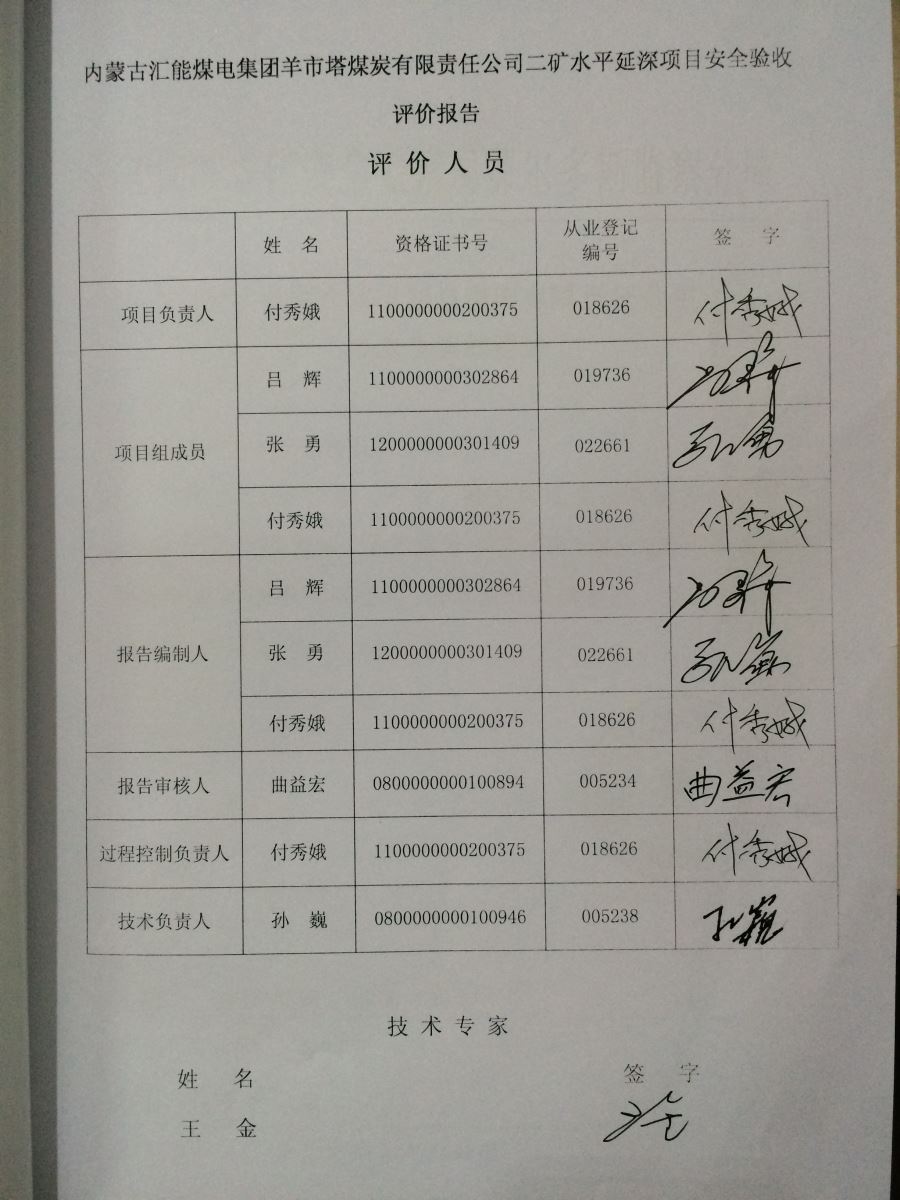 内蒙古汇能煤电集团羊市塔煤炭有限责任公司二矿水平延深项目安全验收
评价报告
评价人员
姓 名 资格证书号 从业登记编号 签 字
项目负责人 付秀娥 1100000000200375 018626 付秀娥
项目组成员 吕 辉 1100000000302864 019736 吕辉
张 勇 1200000000301409 022661 张勇
付秀娥 1100000000200375 018626 付秀娥
报告编制人 吕 辉 1100000000302864 019736 吕辉
张 勇 1200000000301409 022661
付秀娥 1100000000200375 018626 付秀娥
报告审核人 曲益宏 0800000000100894 005234 曲益宏
过程控制负责人 付秀娥 1100000000200375 018626 付秀娥
技术负责人 孙 巍 0800000000100946 005238 孙巍
技术专家
姓 名 签 字
王 金 王金